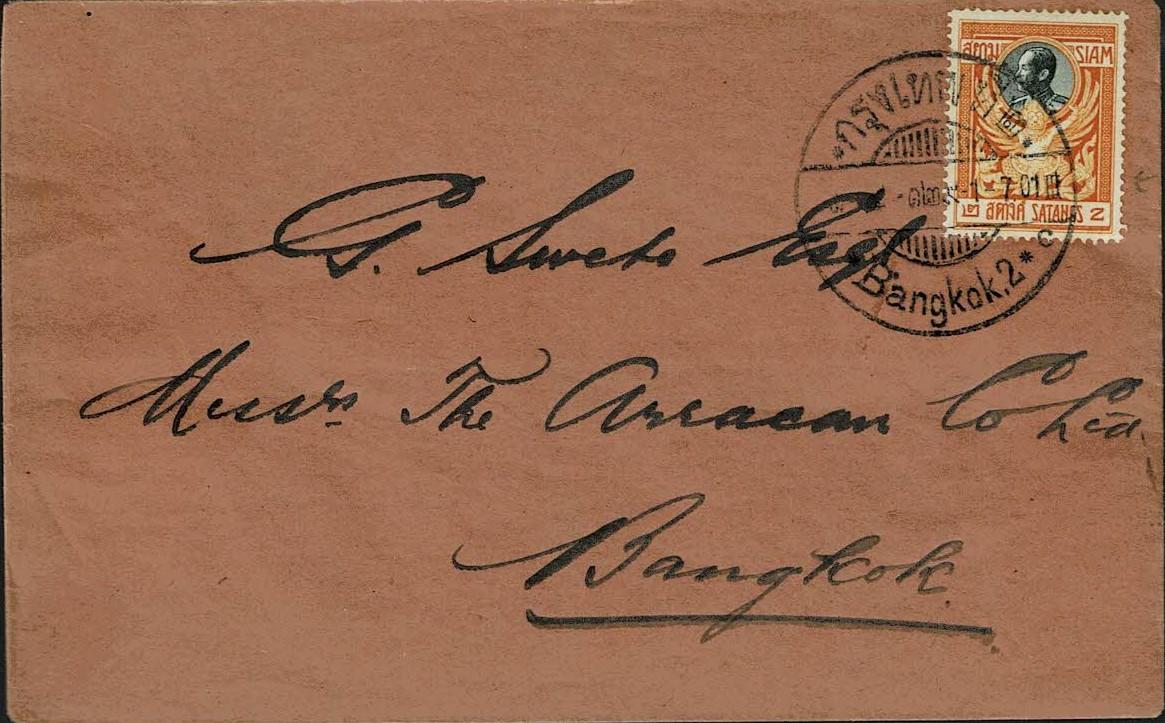 สยาม SIAM
๒ สตางค์ SATANGS 2
กรุงเทพฯ ๒
Bangkok.2 * c
G. Swete Esq
Messrs The Arracan Co Ltd.
Bangkok.